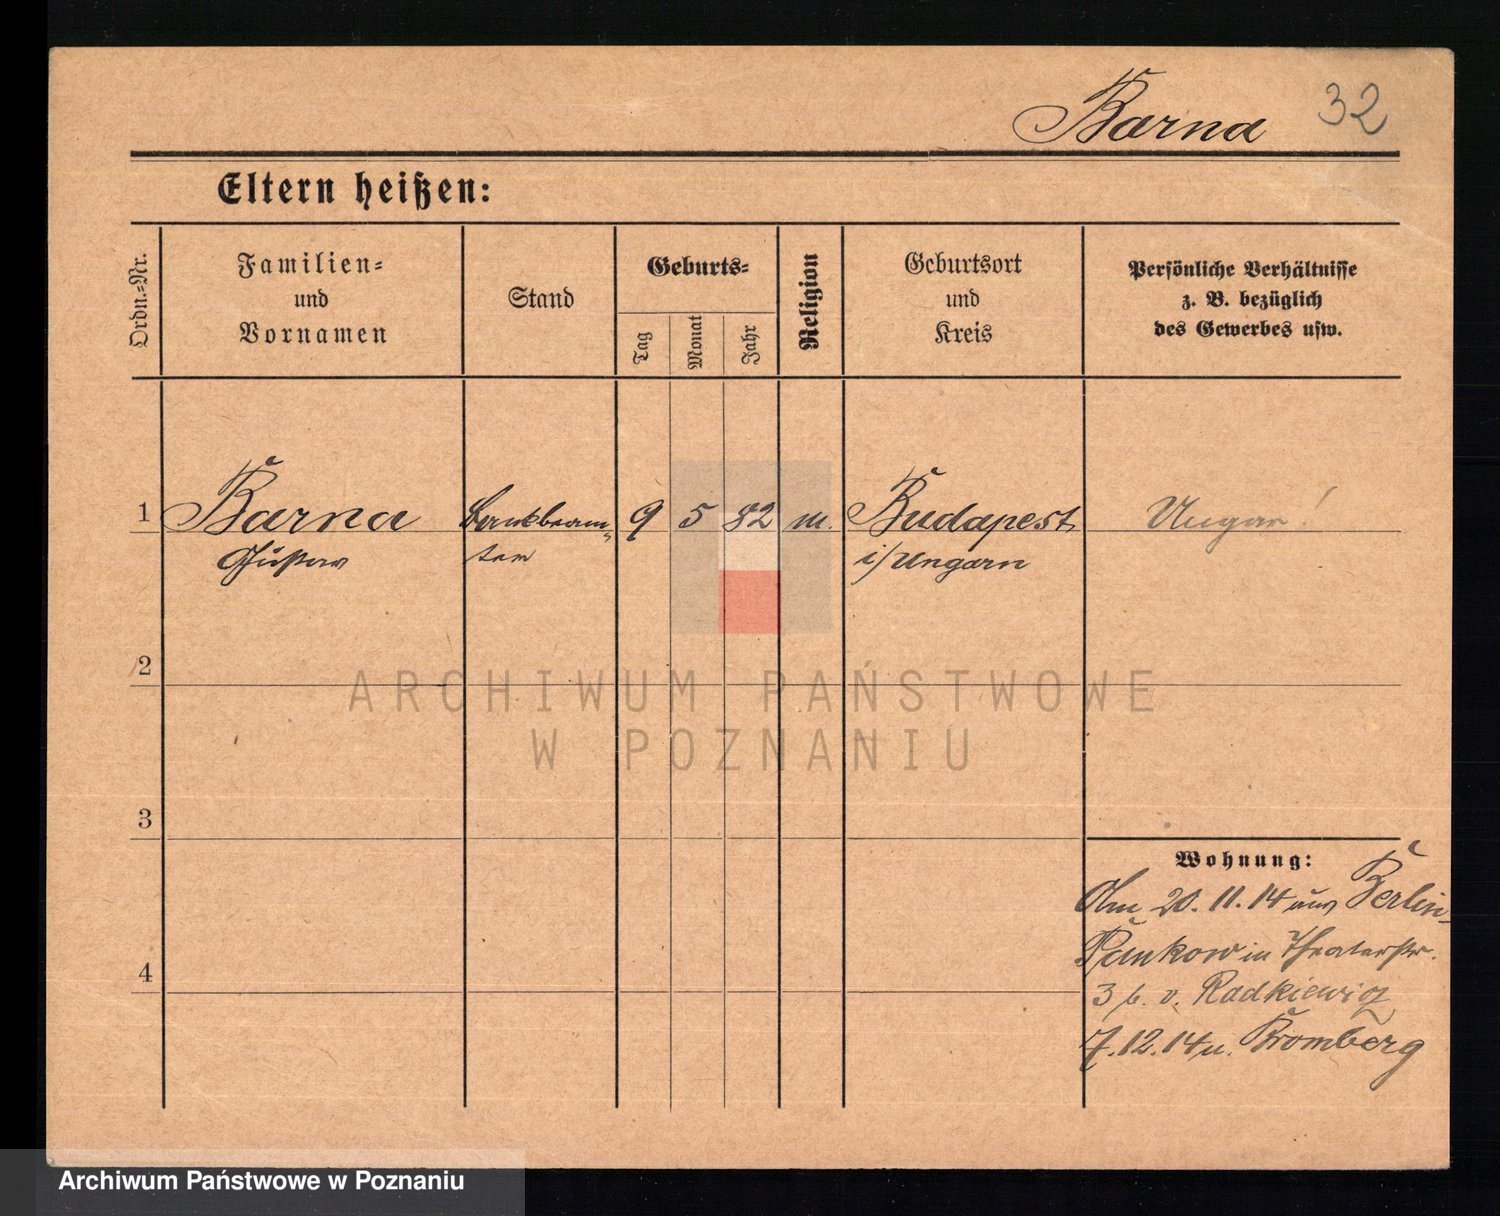 Barna 32
Eltern heißen:
Ordn.-Nr.
Familien-
und
Vornamen
Stand
Geburts-
Tag
Monat
Jahr
Religion
Geburtsort
und
Kreis
Persönliche Verhältnisse
z. B. bezüglich
des Gewerbes usw.
1 Barna Bankbeam- 9 5 82 m. Budapest Ungar!
Gustav ter i/Ungarn
2
ARCHIWUM PAŃSTWOWE
W POZNANIU
3
Wohnung:
Am 20.11.14 aus Berlin-
Pankow in Theaterstr.
4
3 b. v. Radkiewicz
7.12.14 n. Bromberg
Archiwum Państwowe w Poznaniu